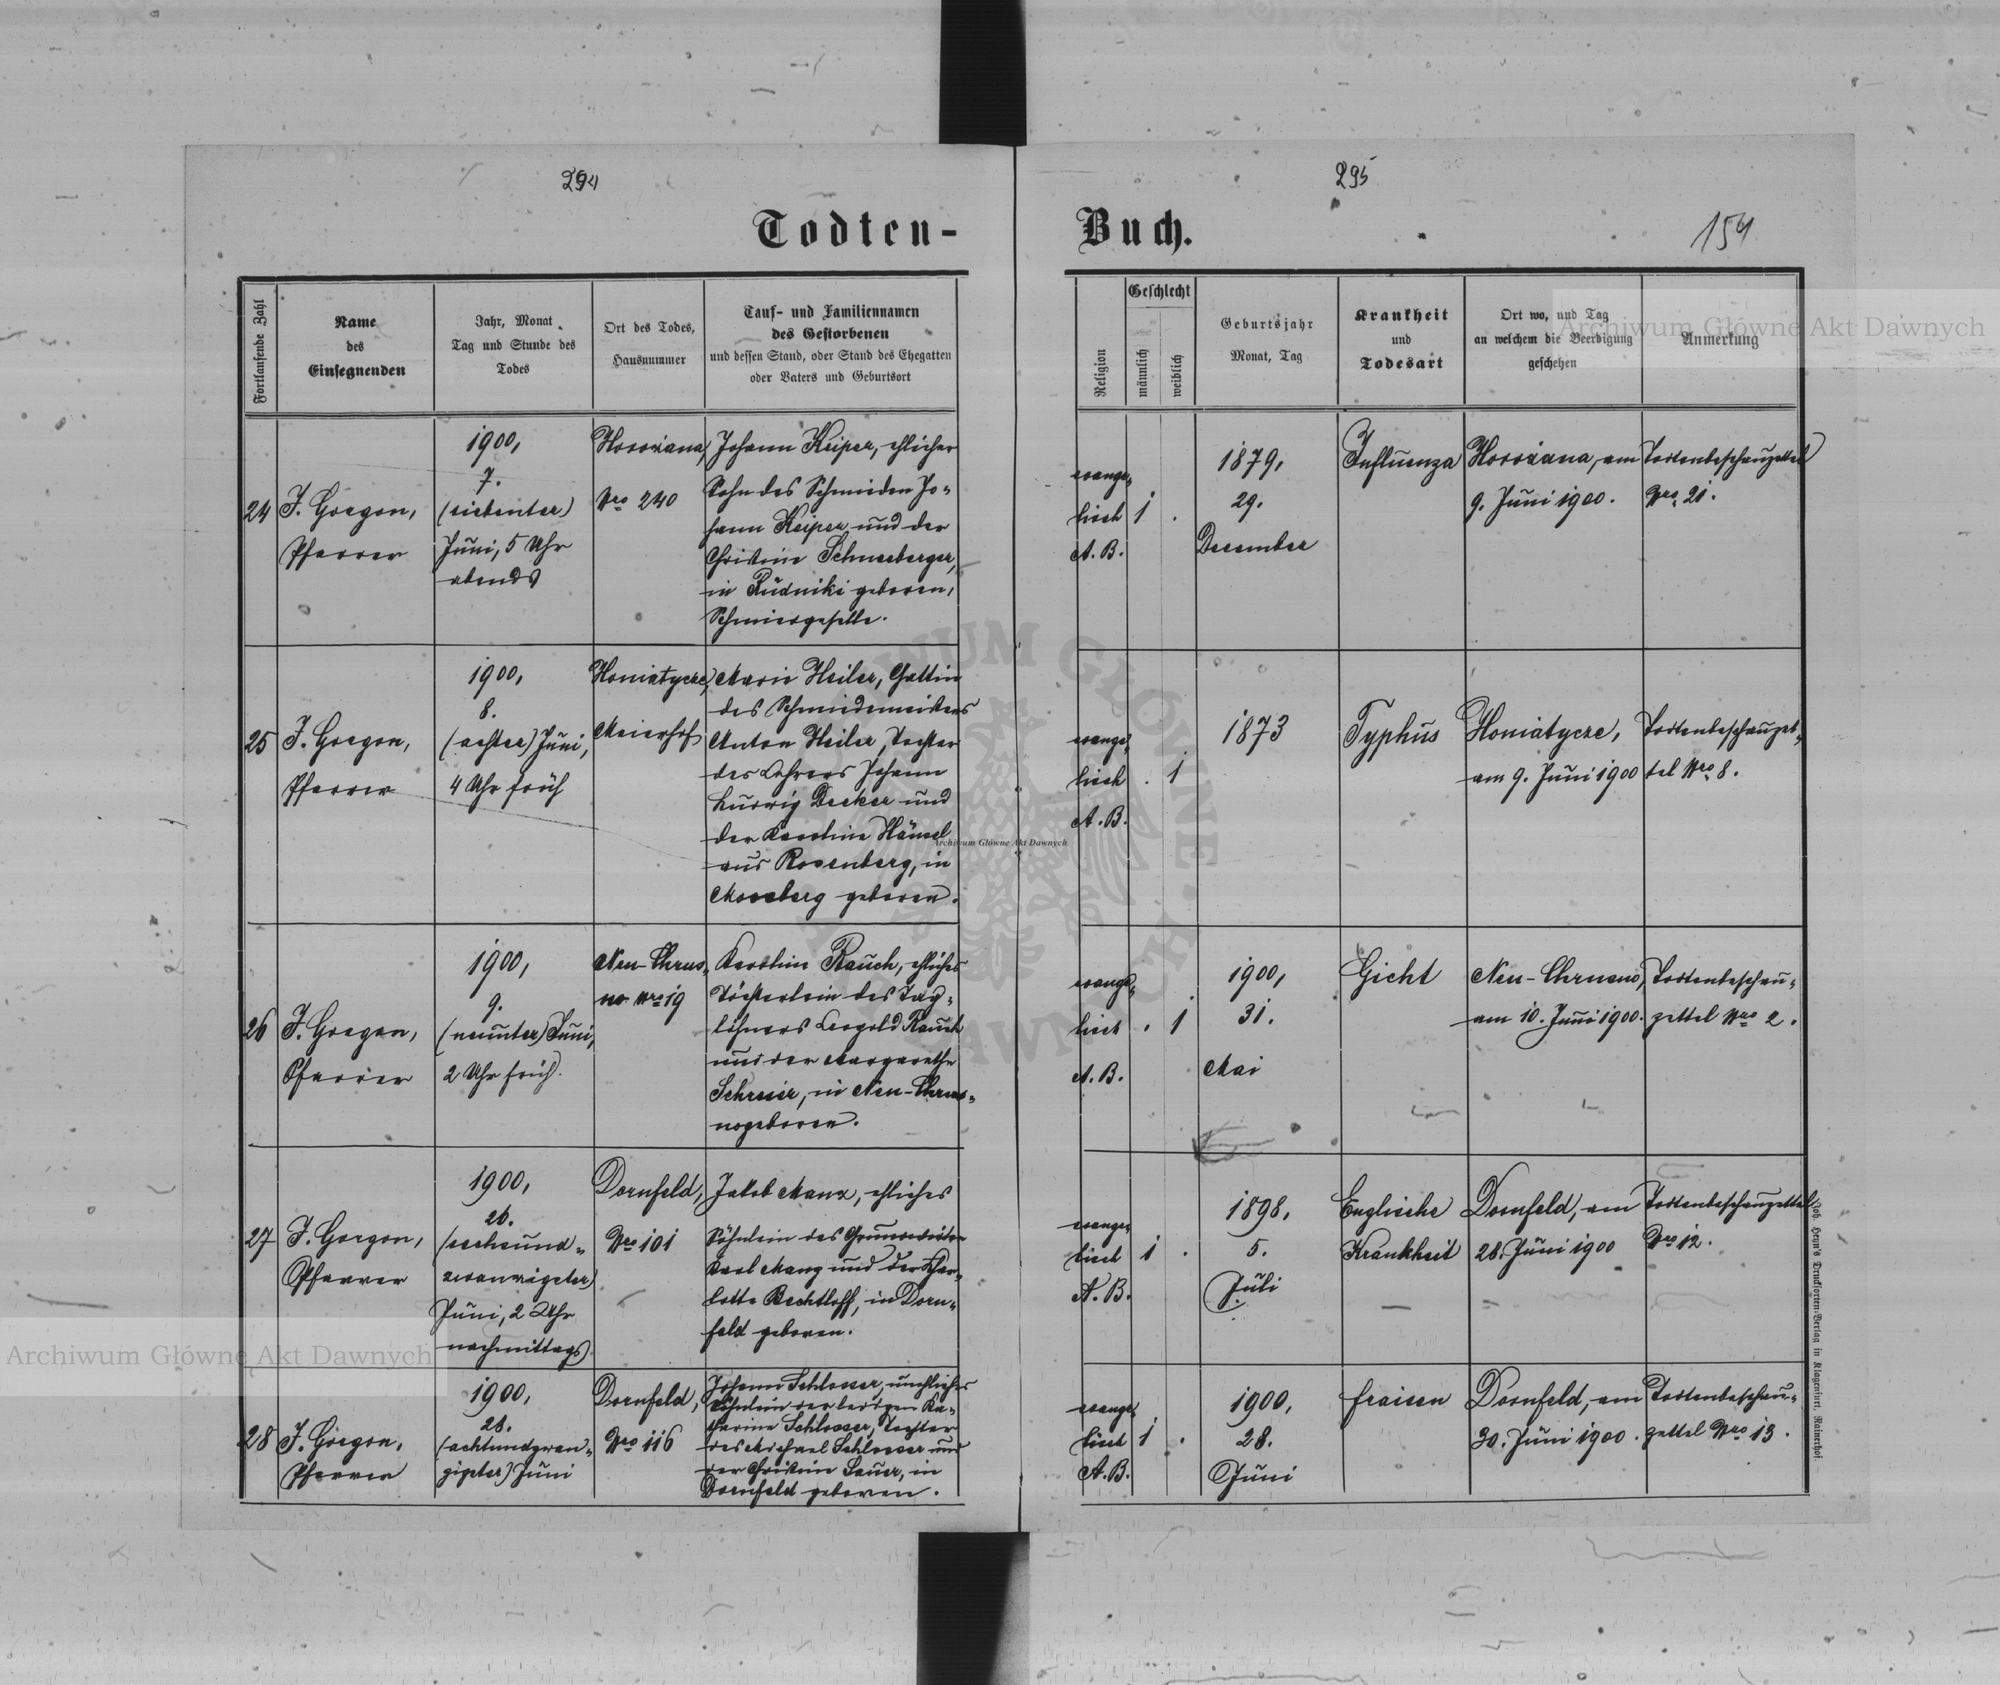 294
295
Todten-
Buch.
154
Fortlaufende Zahl
Name
des
Einsegnenden
Jahr, Monat
Tag und Stunde des
Todes
Ort des Todes,
Hausnummer
Tauf- und Familiennamen
des Gestorbenen
und dessen Stand, oder Stand des Ehegatten
oder Vaters und Geburtsort
Religion
Geschlecht
männlich
weiblich
Geburtsjahr
Monat, Tag
Krankheit
und
Todesart
Ort wo, und Tag
an welchem die Beerdigung
geschehen
Anmerkung
24
J. Gorgon,
Pfarrer
1900,
7.
(siebenter)
Juni, 5 Uhr
abends
Horożana,
Nro 240
Johann Keiper, ehlicher
Sohn des Schmieden Jo-
hann Keiper und der
Christine Schneeberger,
in Rudniki geboren,
Schmiedgeselle.
evange-
lisch
A. B.
1
.
1879,
29.
December
Influenza
Horożana, am
9. Juni 1900.
Todtenbeschauzettel
Nro 21.
25
J. Gorgon,
Pfarrer
1900,
8.
(achter) Juni,
4 Uhr früh
Honiatycze,
Meierhof
Marie Heiler, Gattin
des Schmiedemeisters
Anton Heiler, Tochter
des Lehrers Johann
Ludwig Decker und
der Karoline Hänsel
aus Rosenberg, in
Moosberg geboren.
evange-
lisch
A. B.
.
1
1873
Typhus
Honiatycze,
am 9. Juni 1900
Todtenbeschauzet-
tel Nro 8.
26
J. Gorgon,
Pfarrer
1900,
9.
(neunter) Juni,
2 Uhr früh.
Neu-Chrus-
no Nro 19
Karoline Rauch, ehliches
Töchterlein des Tag-
löhners Leopold Rauch
und der Margarethe
Schreier, in Neu-Chrus-
no geboren.
evange-
lisch
A. B.
.
1
1900,
31.
Mai
Gicht
Neu-Chrusno,
am 10. Juni 1900.
Todtenbeschau-
zettel Nro 2.
27
J. Gorgon,
Pfarrer
1900,
26.
(sechsund-
zwanzigster)
Juni, 2 Uhr
nachmittags
Dornfeld,
Nro 101
Jakob Manz, ehliches
Söhnlein des Grundwirten
Karl Manz und der Char-
lotte Bechtloff, in Dorn-
feld geboren.
evange-
lisch
A. B.
1
.
1898,
5.
Juli
Englische
Krankheit
Dornfeld, am
28. Juni 1900
Todtenbeschauzettel
Nro 12.
28
J. Gorgon,
Pfarrer
1900,
28.
(achtundzwan-
zigster) Juni
Dornfeld,
Nro 116
Johann Schlosser, unehliches
Söhnlein der ledigen Ka-
tharina Schlosser, Tochter
des Michael Schlosser und
der Christine Sauer, in
Dornfeld geboren.
evange-
lisch
A. B.
1
.
1900,
28.
Juni
Fraisen
Dornfeld, am
30. Juni 1900.
Todtenbeschau-
zettel Nro 13.
Joh. Heyn's Drucksorten-Verlag in Klagenfurt, Rainerhof.
Archiwum Główne Akt Dawnych
Archiwum Główne Akt Dawnych
Archiwum Główne Akt Dawnych